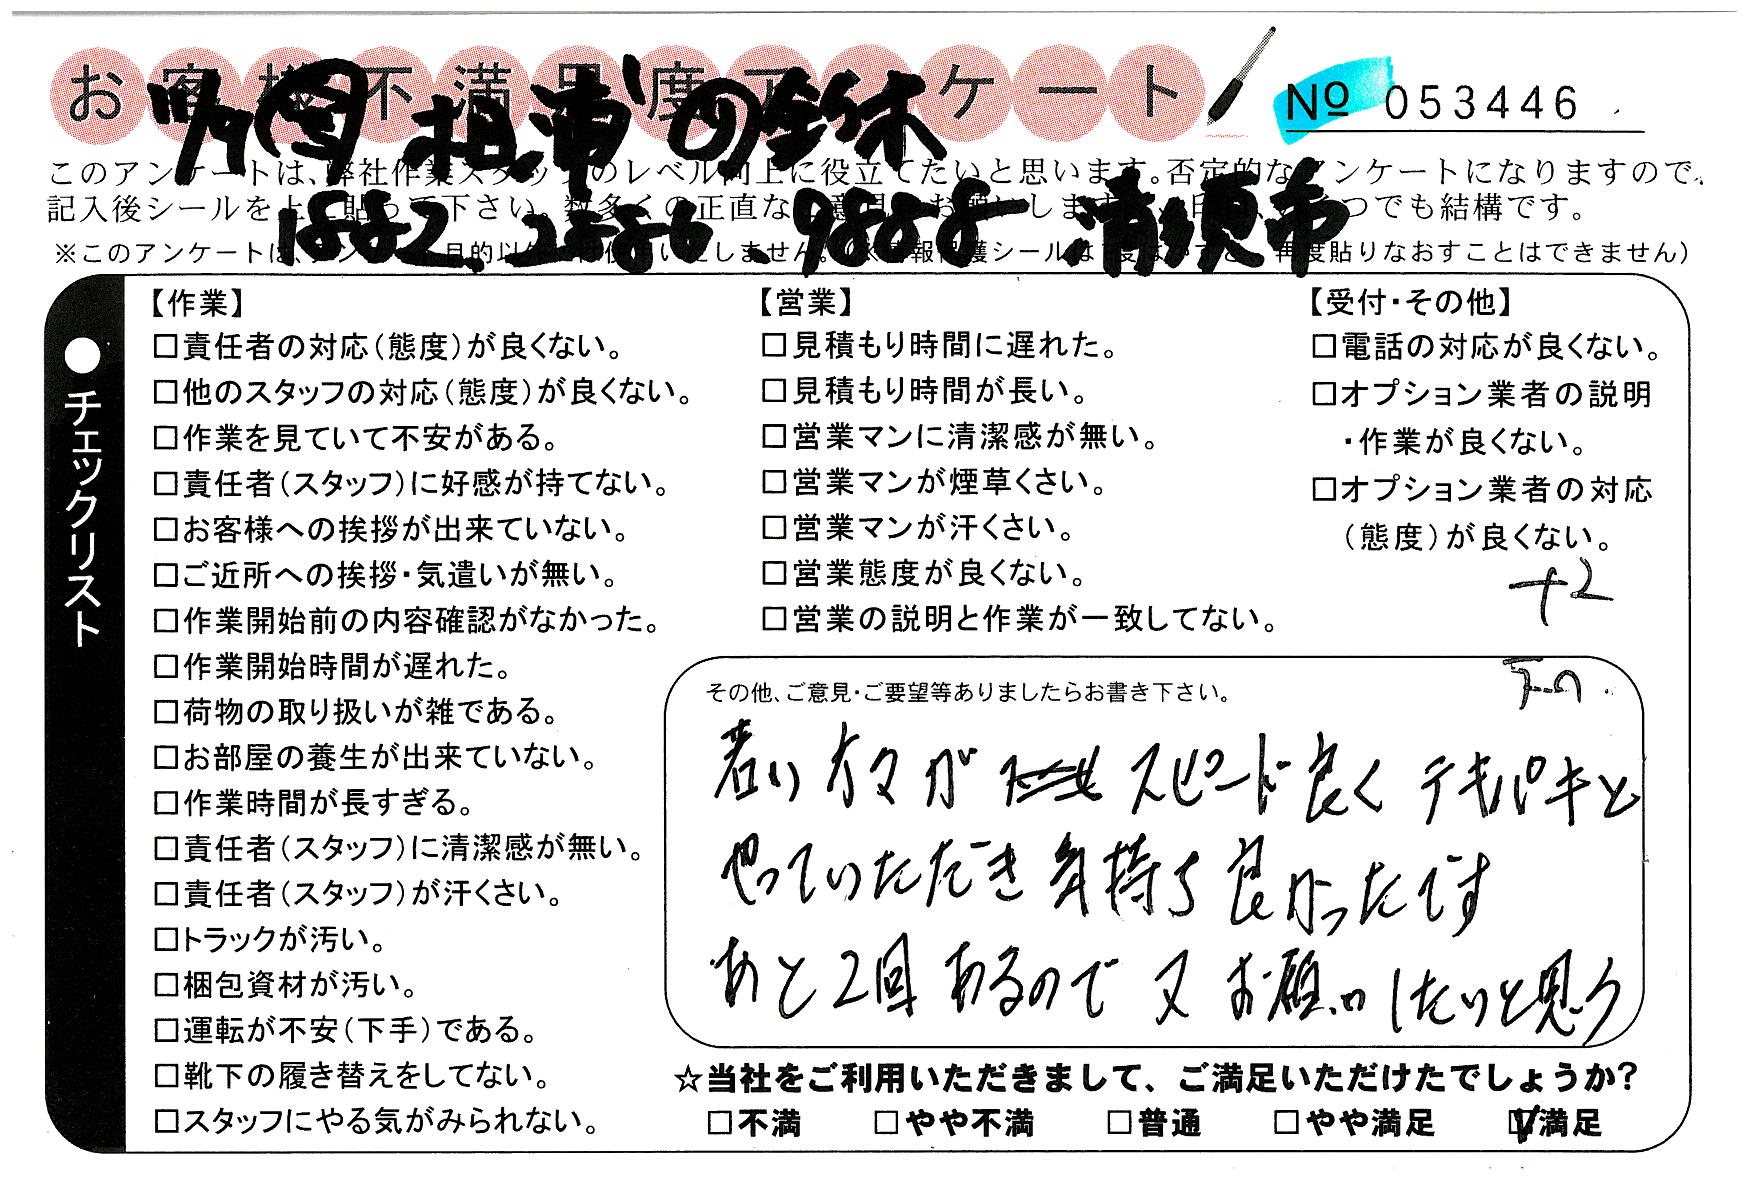 お客様不満足度アンケート
No 053446
相 浦 の 鈴木
このアンケートは、弊社作業スタッフのレベル向上に役立てたいと思います。否定的なアンケートになりますので、
記入後シールを上に貼って下さい。数多くの正直なご意見をお願いします。
1882. 2886. 9888 清須市
※このアンケートは、アンケート目的以外には使用いたしません。(※情報保護シールは1度はがすと、再度貼りなおすことはできません)
●チェックリスト
【作業】
□責任者の対応(態度)が良くない。
□他のスタッフの対応(態度)が良くない。
□作業を見ていて不安がある。
□責任者(スタッフ)に好感が持てない。
□お客様への挨拶が出来ていない。
□ご近所への挨拶・気遣いが無い。
□作業開始前の内容確認がなかった。
□作業開始時間が遅れた。
□荷物の取り扱いが雑である。
□お部屋の養生が出来ていない。
□作業時間が長すぎる。
□責任者(スタッフ)に清潔感が無い。
□責任者(スタッフ)が汗くさい。
□トラックが汚い。
□梱包資材が汚い。
□運転が不安(下手)である。
□靴下の履き替えをしてない。
□スタッフにやる気がみられない。
【営業】
□見積もり時間に遅れた。
□見積もり時間が長い。
□営業マンに清潔感が無い。
□営業マンが煙草くさい。
□営業マンが汗くさい。
□営業態度が良くない。
□営業の説明と作業が一致してない。
【受付・その他】
□電話の対応が良くない。
□オプション業者の説明
・作業が良くない。
□オプション業者の対応
(態度)が良くない。
+2
その他、ご意見・ご要望等ありましたらお書き下さい。
若い方々が スピード良く テキパキと
やっていただき 気持ち良かったです
あと2回あるので 又 お願いしたいと思う
☆当社をご利用いただきまして、ご満足いただけたでしょうか?
□不満 □やや不満 □普通 □やや満足 ☑満足